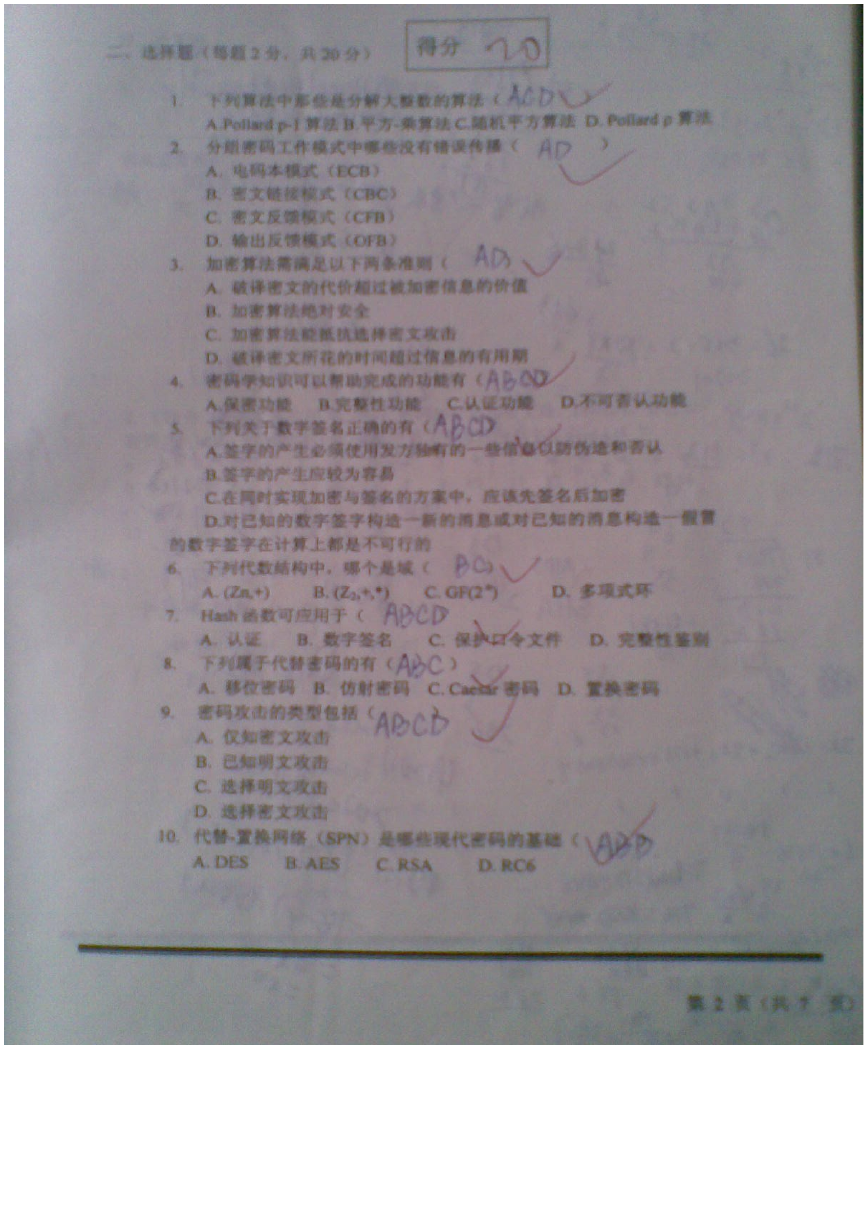 二、选择题（每题2分，共20分） 得分 20
1. 下列算法中那些是分解大整数的算法（ ACD ）
A.Pollard p-1 算法 B.平方-乘算法 C.随机平方算法 D. Pollard ρ 算法
2. 分组密码工作模式中哪些没有错误传播（ AD ）
A. 电码本模式（ECB）
B. 密文链接模式（CBC）
C. 密文反馈模式（CFB）
D. 输出反馈模式（OFB）
3. 加密算法需满足以下两条准则（ AD ）
A. 破译密文的代价超过被加密信息的价值
B. 加密算法绝对安全
C. 加密算法能抵抗选择密文攻击
D. 破译密文所花的时间超过信息的有用期
4. 密码学知识可以帮助完成的功能有（ABCD）
A.保密功能 B.完整性功能 C.认证功能 D.不可否认功能
5. 下列关于数字签名正确的有（ABCD
A.签字的产生必须使用发方独有的一些信息以防伪造和否认
B.签字的产生应较为容易
C.在同时实现加密与签名的方案中，应该先签名后加密
D.对已知的数字签字构造一新的消息或对已知的消息构造一假冒
的数字签字在计算上都是不可行的
6. 下列代数结构中，哪个是域（ BC ）
A. (Zn,+) B. (Z₂,+,*) C. GF(2⁸) D. 多项式环
7. Hash 函数可应用于（ ABCD
A. 认证 B. 数字签名 C. 保护口令文件 D. 完整性鉴别
8. 下列属于代替密码的有（ABC ）
A. 移位密码 B. 仿射密码 C. Caesar 密码 D. 置换密码
9. 密码攻击的类型包括（ ABCD ）
A. 仅知密文攻击
B. 已知明文攻击
C. 选择明文攻击
D. 选择密文攻击
10. 代替-置换网络（SPN）是哪些现代密码的基础（ ABD
A. DES B. AES C. RSA D. RC6
第 2 页（共 7 页）